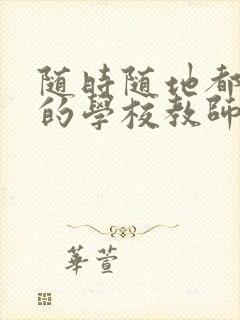 随時随地都
的學校教師
華萱